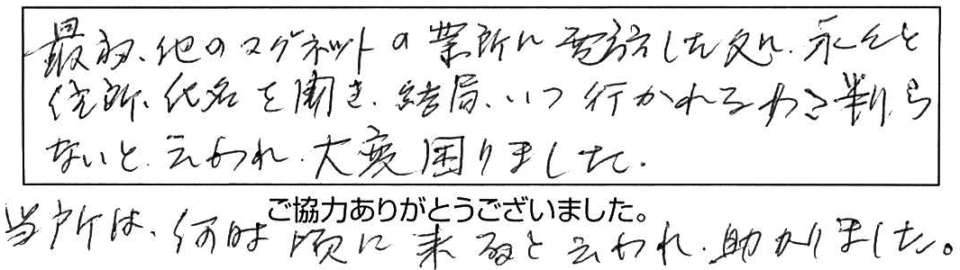 最初、他のマグネットの業所に電話した処、永々と
住所、氏名を聞き、結局、いつ行かれるわさ判ら
ないと、云われ、大変困りました。
ご協力ありがとうございました。
当所は、何時頃に来ると云われ、助かりました。